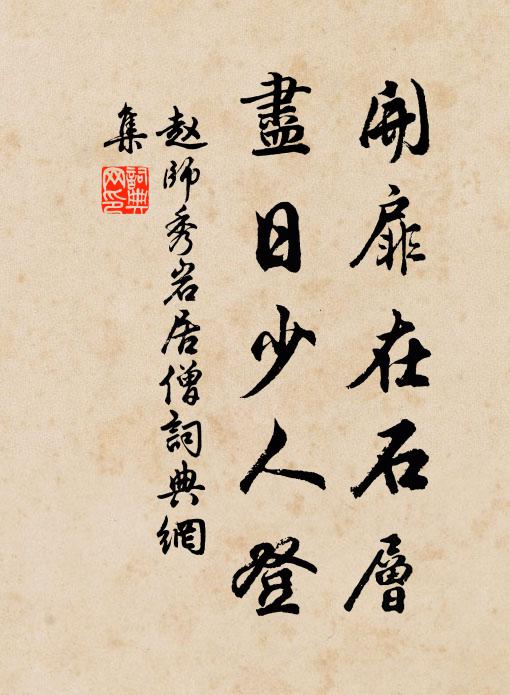 開扉在石層
盡日少人登
赵師秀岩居僧詞典網
集
詞典網印